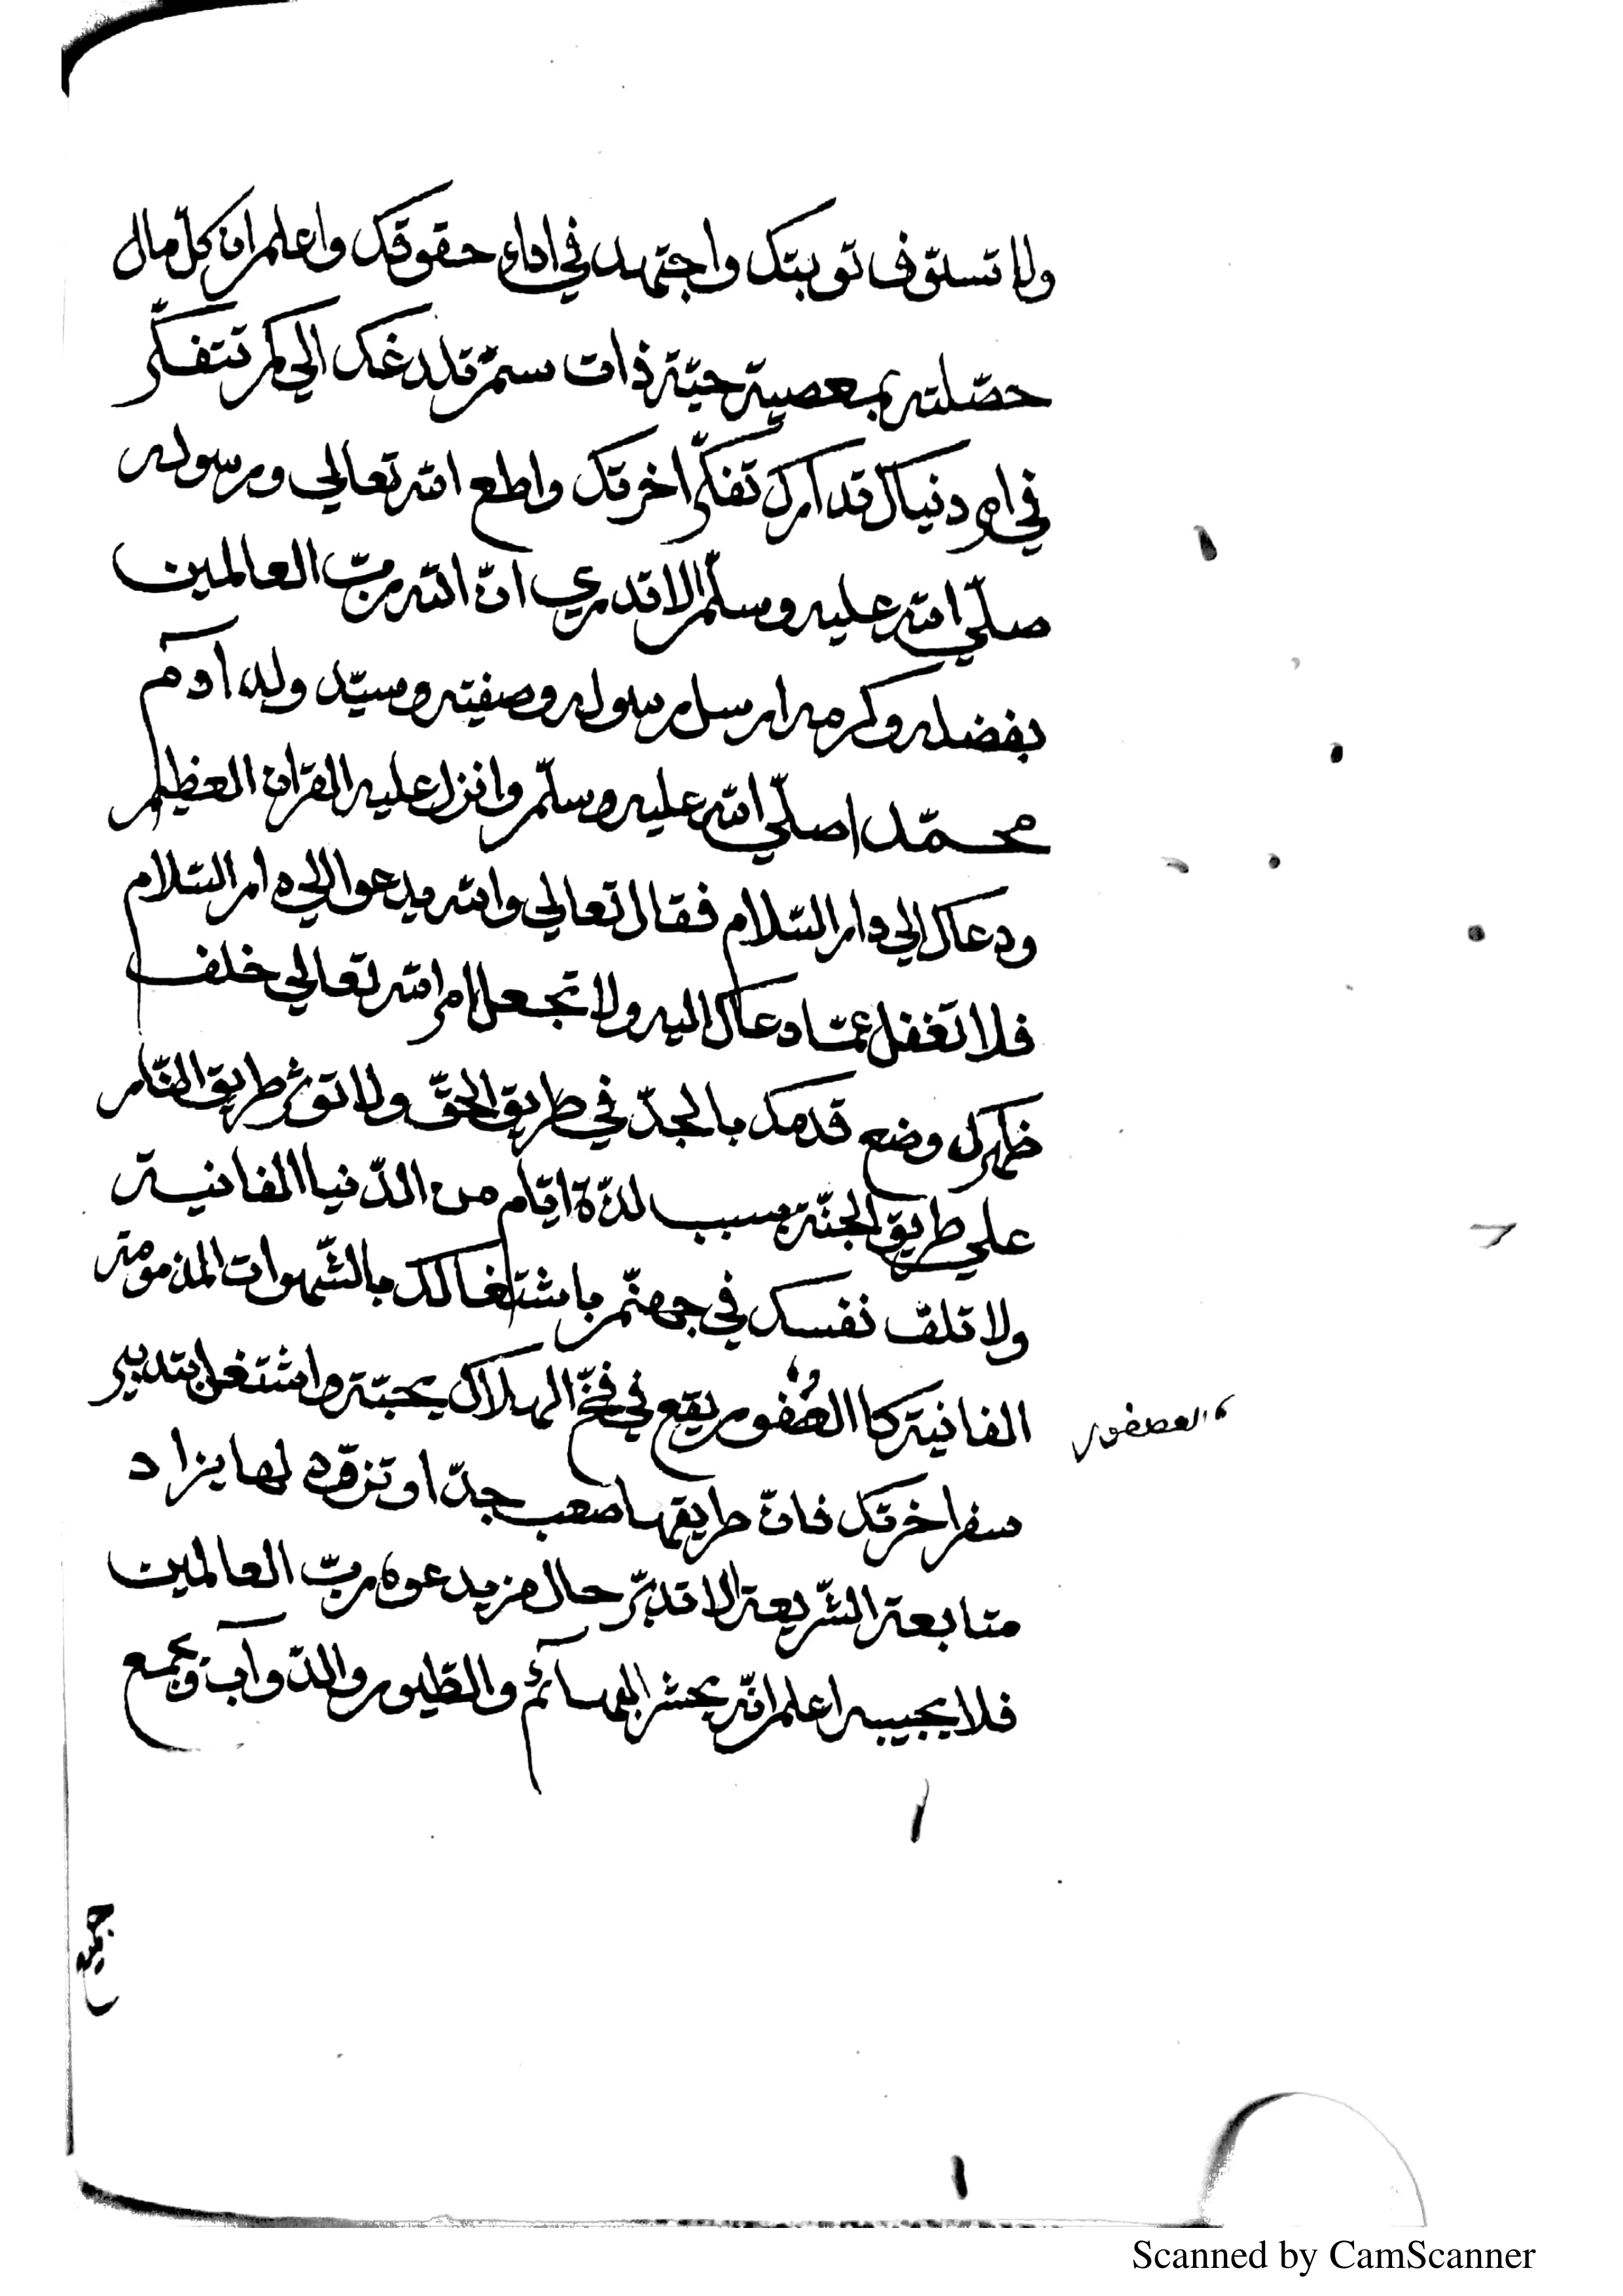 ولا تسوّف توبتك واجتهد في اداء حقوقك واعلم ان كلّ مال
حصّلته بمعصية حيّة ذات سمّ قد لدغك الي كم تتفكّر
في امر دنياك تدارك تفكّر اخرتك واطع الله تعالي ورسوله
صلّي الله عليه وسلّم الا تدري انّ الله ربّ العالمين
بفضله وكرمه ارسل رسوله وصفيته وسيّد ولد آدم
محمّدا صلّي الله عليه وسلّم وانزل عليه القرآن العظيم
ودعاك الي دار السّلام فقال تعالي والله يدعوا الي دار السّلام
فلا تغفل عمّا دعاك اليه ولا تجعل امر الله تعالي خلف
ظهرك وضع قدمك بالجدّ في طريق الحقّ ولا تؤثر طريق النّار
علي طريق الجنّة بسبب لذّة ايّام من الدّنيا الفانية
ولا تلقّ نفسك في جهنّم باشتغالك بالشّهوات المذمومة
الفانية كا العُصْفور يقع في فخّ الهلاك بحبّة واشتغل بتدبير
العصفور
سفر اخرتك فانّ طريقها صعب جدّا وتزوّد لها بزاد
متابعة الشّريعة الا تدبّر حال من يدعوه ربّ العالمين
فلا يجيبه اعلم انّه يحشر البهائم والطّيور والدّوآبّ ويجمع
جميع
Scanned by CamScanner